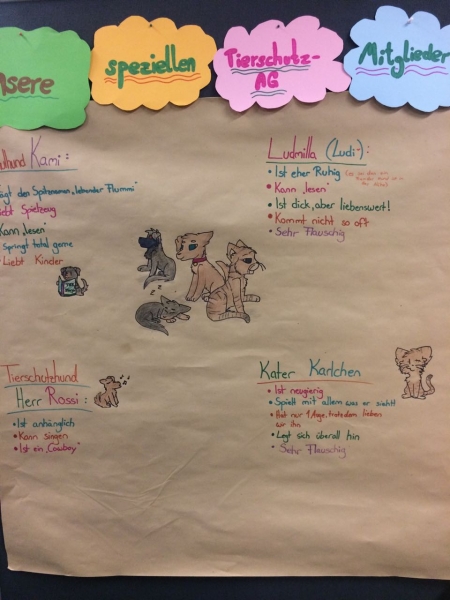 nsere
speziellen
Tierschutz-
AG
Mitglieder
ulhund Kami:
ägt den Spitznamen „lebender Flummi"
iebt Spielzeug
Kann „lesen"
Springt total gerne
• Liebt Kinder
Ludmilla (Ludi-):
• Ist eher Ruhig
• Kann „lesen"
• Ist dick, aber liebenswert!
• Kommt nicht so oft
• Sehr Flauschig
Tierschutzhund
Herr Rossi:
• Ist anhänglich
• Kann singen
• Ist ein „Cowboy"
Kater Karlchen
• Ist neugierig
• Spielt mit allem was er sieht!
• Hat nur 1 Auge, trotzdem lieben
wir ihn
• Legt sich überall hin
• Sehr Flauschig